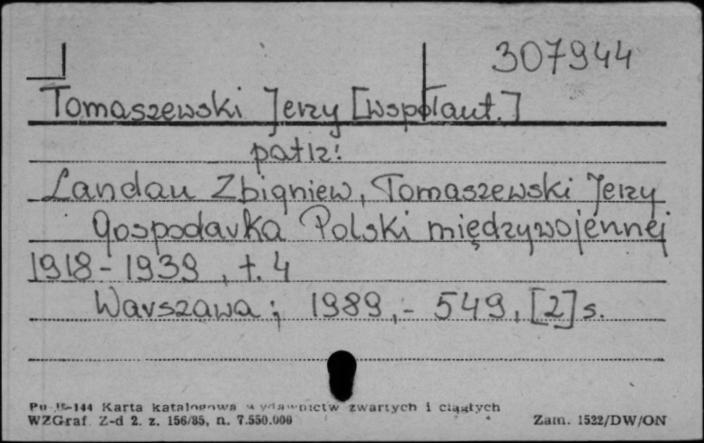 307944
Tomaszewski Jerzy [współaut.]
patrz:
Landau Zbigniew, Tomaszewski Jerzy
Gospodarka Polski międzywojennej
1918-1939, t. 4
Warszawa; 1989,- 549, [2] s.
Pu-144 Karta katalogowa wydawnictw zwartych i ciągłych
WZGraf. Z-d 2. z. 156/85, n. 7.550.000 Zam. 1522/DW/ON